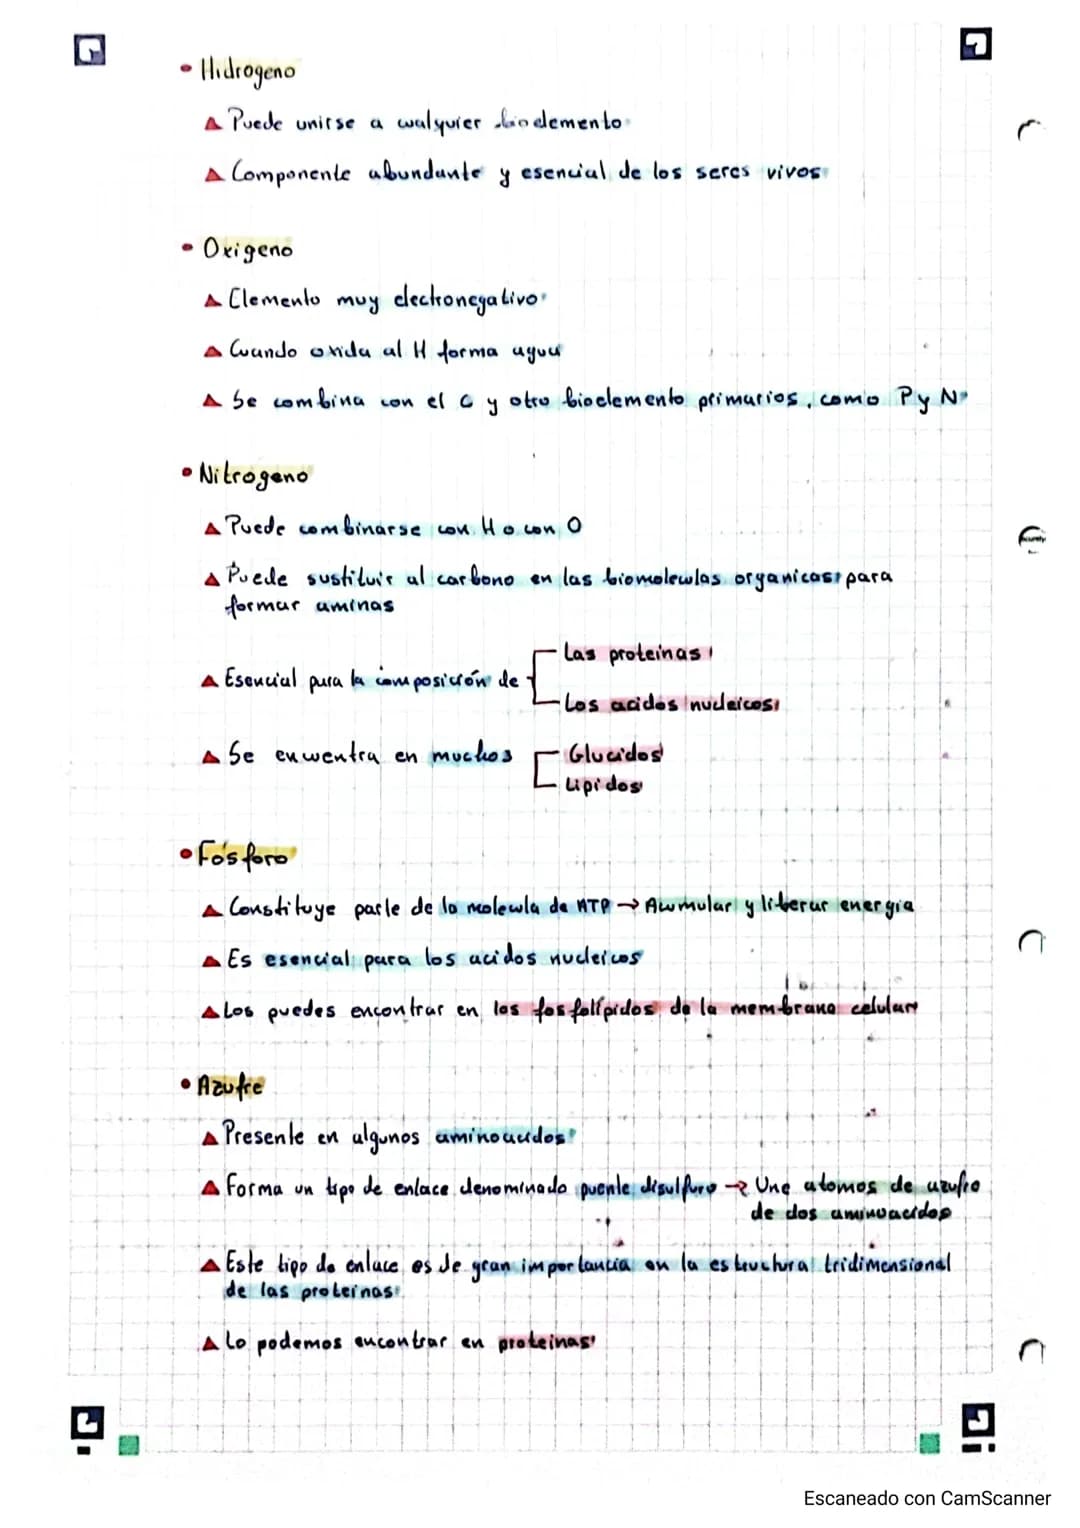 • Hidrogeno
▲ Puede unirse a cualquier bioelemento
▲ Componente abundante y esencial de los seres vivos
• Oxigeno
▲ Elemento muy electronegativo
▲ Cuando oxida al H forma agua
▲ Se combina con el C y otro bioelemento primarios, como P y N
• Nitrogeno
▲ Puede combinarse con H o con O
▲ Puede sustituir al carbono en las biomoleculas organicas, para
formar aminas
▲ Esencial para la composición de
Las proteinas
Los acidos nucleicos
▲ Se encuentra en muchos
Glucidos
Lipidos
• Fósforo
▲ Constituye parte de la molecula de ATP → Acumular y liberar energia
▲ Es esencial para los acidos nucleicos
▲ Los puedes encontrar en los fosfolípidos de la membrana celular
• Azufre
▲ Presente en algunos aminoacidos
▲ Forma un tipo de enlace denominado puente disulfuro → Une atomos de azufre
de dos aminoacidos
▲ Este tipo de enlace es de gran importancia en la estructura tridimensional
de las proteinas
▲ Lo podemos encontrar en proteinas
Escaneado con CamScanner